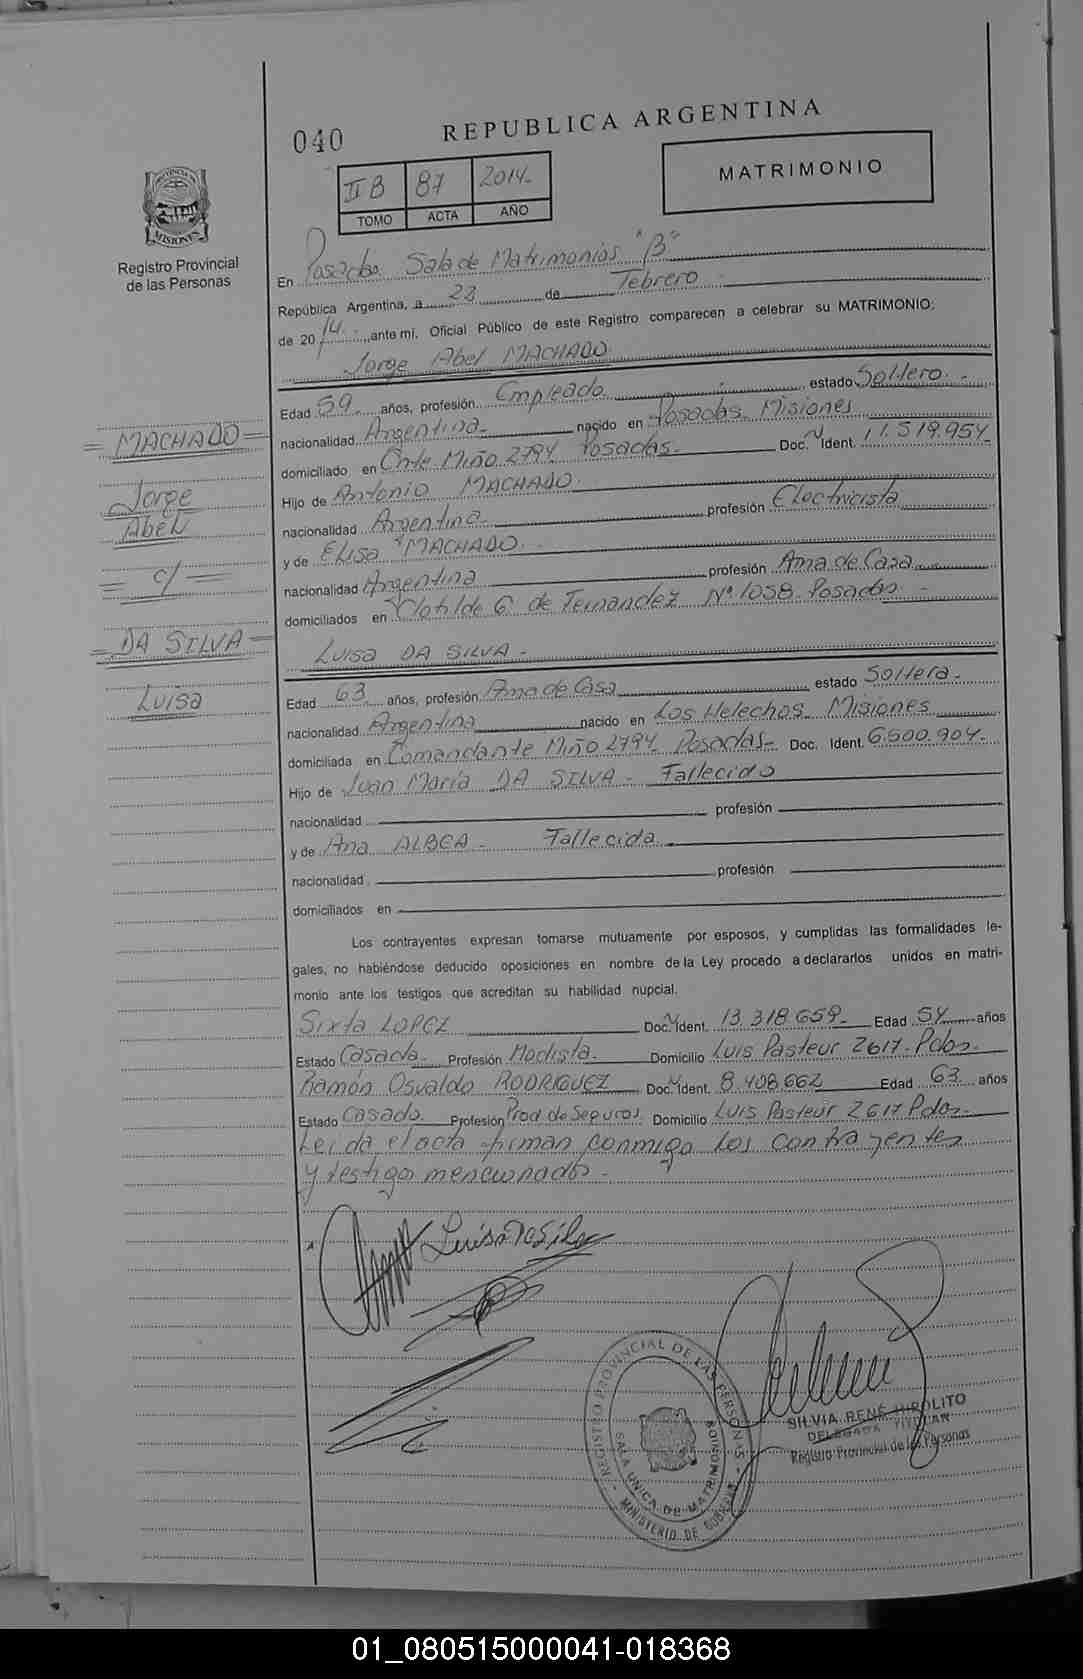 040
REPUBLICA ARGENTINA
II B 87 2014.-
TOMO ACTA AÑO
MATRIMONIO
PROVINCIA DE
MISIONES
Registro Provincial
de las Personas
En Posadas Sala de Matrimonios "B"
República Argentina, a 28 de Febrero
de 2014. ,ante mí, Oficial Público de este Registro comparecen a celebrar su MATRIMONIO;
Jorge Abel MACHADO
Edad 59 años, profesión Empleado estado Soltero.-
nacionalidad Argentina.- nacido en Posadas Misiones
domiciliado en Cnte Miño 2794 Posadas.- Doc. N Ident 11.519.954-
Hijo de Antonio MACHADO
nacionalidad Argentina- profesión Electricista
y de Elisa MACHADO.
nacionalidad Argentina profesión Ama de Casa
domiciliados en Clotilde G de Fernandez Nº 1058 Posadas -
= MACHADO =
Jorge
Abel
= c/ =
= DA SILVA =
Luisa
Luisa DA SILVA.-
Edad 63 años, profesión Ama de Casa estado Soltera.-
nacionalidad Argentina nacido en Los Helechos Misiones
domiciliada en Comandante Miño 2794 Posadas- Doc. Ident. 6.500.904.-
Hijo de Juan María DA SILVA - Fallecido
nacionalidad profesión
y de Ana ALBEA - Fallecida
nacionalidad profesión
domiciliados en
Los contrayentes expresan tomarse mutuamente por esposos, y cumplidas las formalidades le-
gales, no habiéndose deducido oposiciones en nombre de la Ley procedo a declararlos unidos en matri-
monio ante los testigos que acreditan su habilidad nupcial.
Sixta LOPEZ Doc. N Ident. 13.318.659- Edad 54 años
Estado Casada.- Profesión Modista.- Domicilio Luis Pasteur 2617- Pdas.
Ramón Osvaldo RODRIGUEZ Doc. N Ident. 8.408.662 Edad 63 años
Estado Casado Profesión Prod de Seguros Domicilio Luis Pasteur 2617 Pdas-
Leida el acta firman conmigo los contrayentes
y testigos mencionados.-
Luisa Da Silva
REGISTRO PROVINCIAL DE LAS PERSONAS -
SALA UNICA DE MATRIMONIOS
- MINISTERIO DE GOBIERNO
SILVIA RENÉ HIPOLITO
DELEGADA TITULAR
Registro Provincial de las Personas
01_080515000041-018368